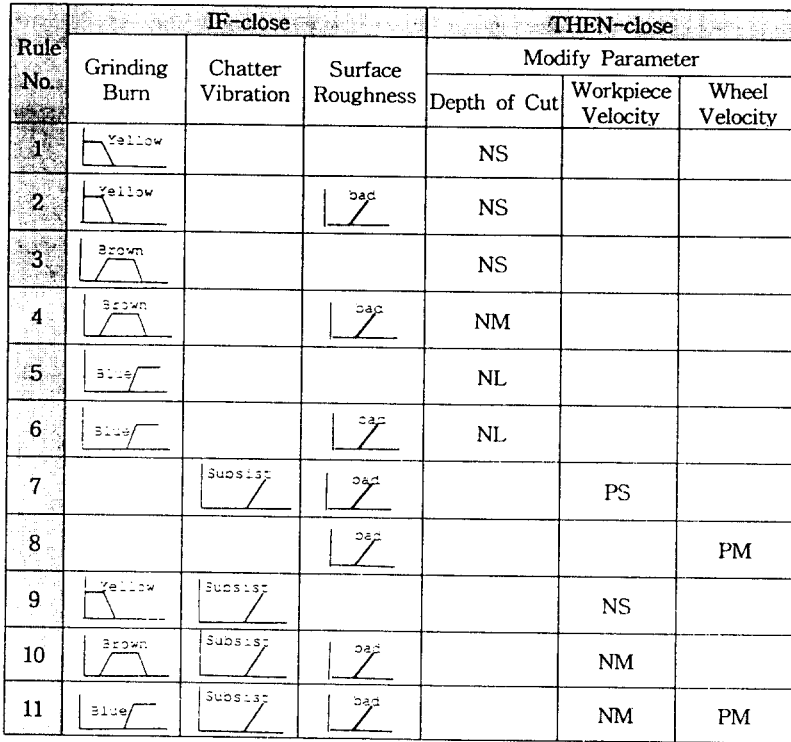 Rule No. IF-close THEN-close
Grinding Burn Chatter Vibration Surface Roughness Modify Parameter
Depth of Cut Workpiece Velocity Wheel Velocity
1 Yellow NS
2 Yellow bad NS
3 Brown NS
4 Brown bad NM
5 Blue NL
6 Blue bad NL
7 Subsist bad PS
8 bad PM
9 Yellow Subsist NS
10 Brown Subsist bad NM
11 Blue Subsist bad NM PM